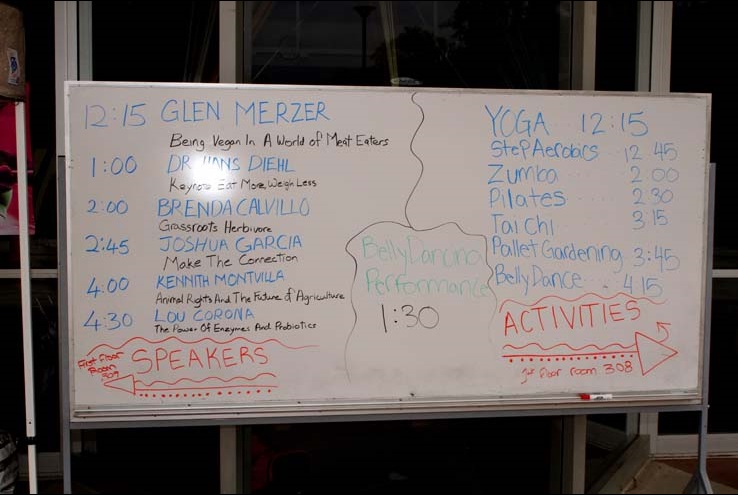 12:15 GLEN MERZER
Being Vegan In A World of Meat Eaters
1:00 DR HANS DIEHL
Keynote Eat More, Weigh Less
2:00 BRENDA CALVILLO
Grassroots Herbivore
2:45 JOSHUA GARCIA
Make The Connection
4:00 KENNITH MONTVILLA
Animal Rights And The Future of Agriculture
4:30 LOU CORONA
The Power Of Enzymes And Probiotics
First Floor
Room
309
SPEAKERS
Belly Dancing
Performance
1:30
YOGA 12:15
Step Aerobics 12 45
Zumba 2 00
Pilates 2 30
Tai Chi 3 15
Pallet Gardening 3:45
Belly Dance 4 15
ACTIVITIES
floor room 308